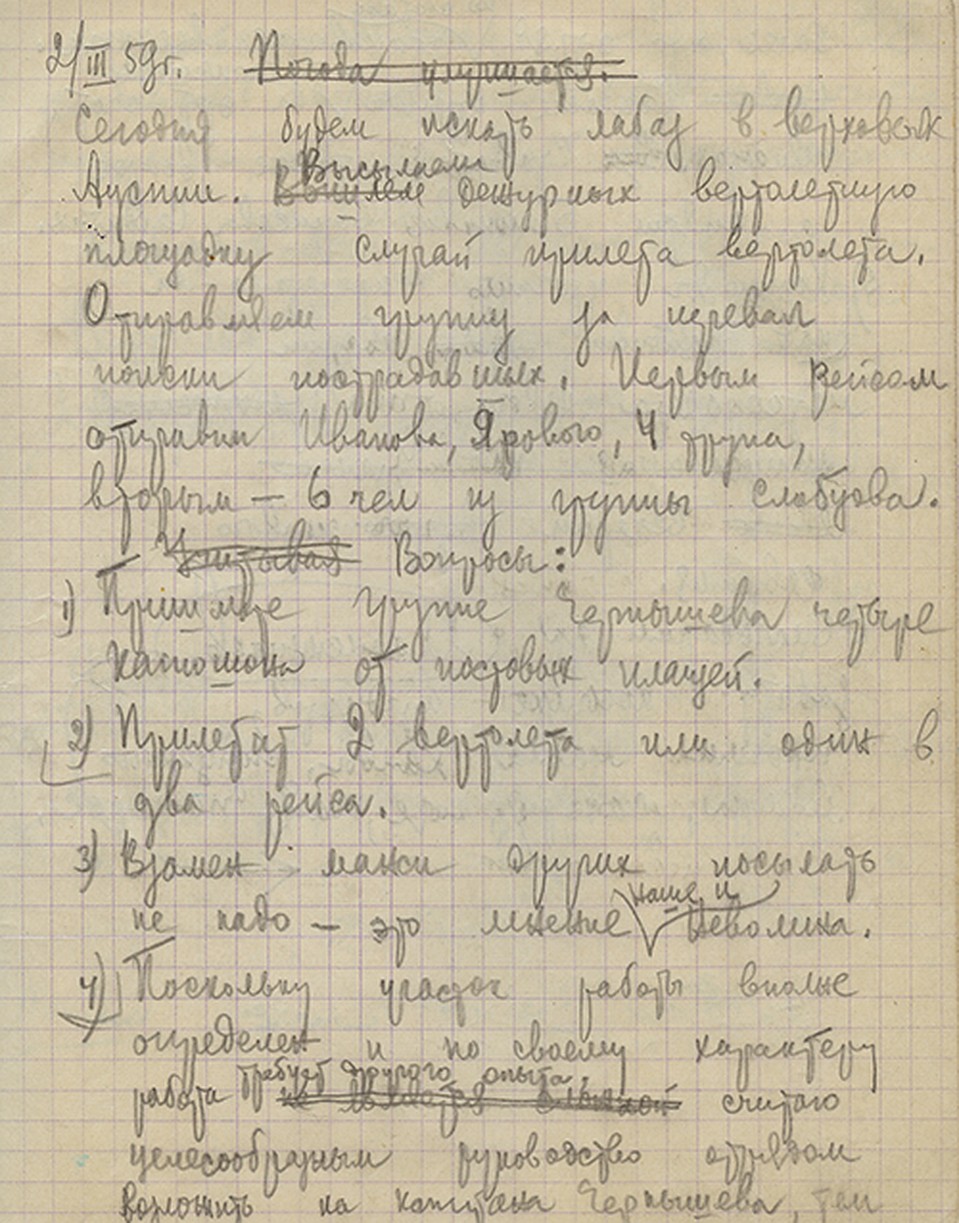 2/III 59г. Погода улучшается.
Сегодня будем искать лабаз в верховьях
Высылаем
Ауспии. Вышлем дежурных вертолетную
площадку случай прилета вертолета.
Отправляем группу за перевал
поиски пострадавших. Первым рейсом
отправим Иванова, Ярового, 4 група,
вторым — 6 чел из группы Слобцова.
Учитывая Вопросы:
1) Пришлите группе Чернышева четыре
капюшона от постовых плащей.
2) Прилетят 2 вертолета или один в
два рейса.
3) Взамен манси других посылать
наше и
не надо — это мнение Неволина.
4) Поскольку участок работы вполне
определен и по своему характеру
требует другого опыта,
работа не является сложной считаю
целесообразным руководство отрядом
возложить на капитана Чернышева, тем